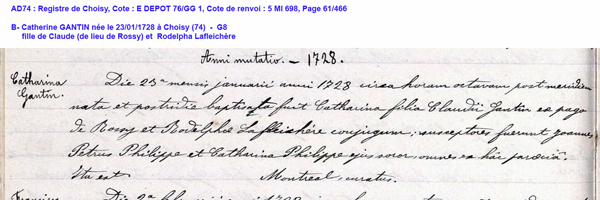 AD74 : Registre de Choisy, Cote : E DEPOT 76/GG 1, Cote de renvoi : 5 MI 698, Page 61/466
B- Catherine GANTIN née le 23/01/1728 à Choisy (74) - G8
fille de Claude (de lieu de Rossy) et Rodelpha Lafleichère
Anni mutatio. - 1728.
Catharina
Gantin.
Die 23a mensis januarii anni 1728 circa horam octavam post meridiem
nata et postridie baptisata fuit Catharina filia Claudii Gantin ex pago
de Rossy et Rodelphæ Lafleichère conjugum; susceptores fuerunt Joannes
Petrus Philippe et Catharina Philippe ejus soror, omnes ex hâc parœciâ.
Ita est Montreal, curatus.